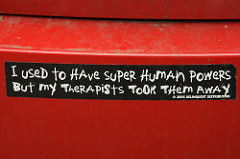 I USED TO HAVE SUPER HUMAN POWERS
BUT MY THERAPISTS TOOK THEM AWAY